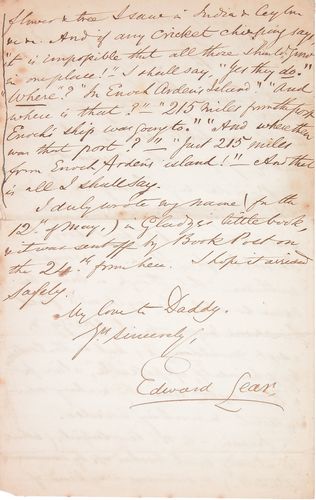 flower & tree I saw in India & Ceylon
&c &c. And if any Cricket chirping says
"it is impossible that all those should grow
in one place!" I shall say "Yes they do."
"Where"? "In Enoch Arden's Island" "And
where is that?" — "215 miles from the port
Enoch's ship was going to." "And where then
was that port?" "Just 215 miles
from Enoch Arden's island!" — And that
is all I shall say.
I duly wrote my name (on the
12th of May,) in Gladys's little book,
& it was sent off by Book Post on
the 24th from here. I hope it arrived
safely.
My love to Daddy.
Yrs sincerely,
Edward Lear.